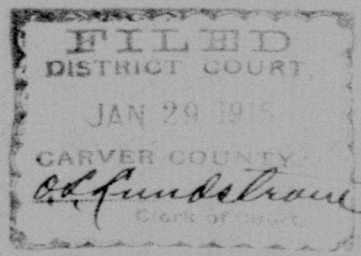 FILED
DISTRICT COURT,
JAN 29 1915
CARVER COUNTY
O. L. Lundstrom
Clerk of Court.